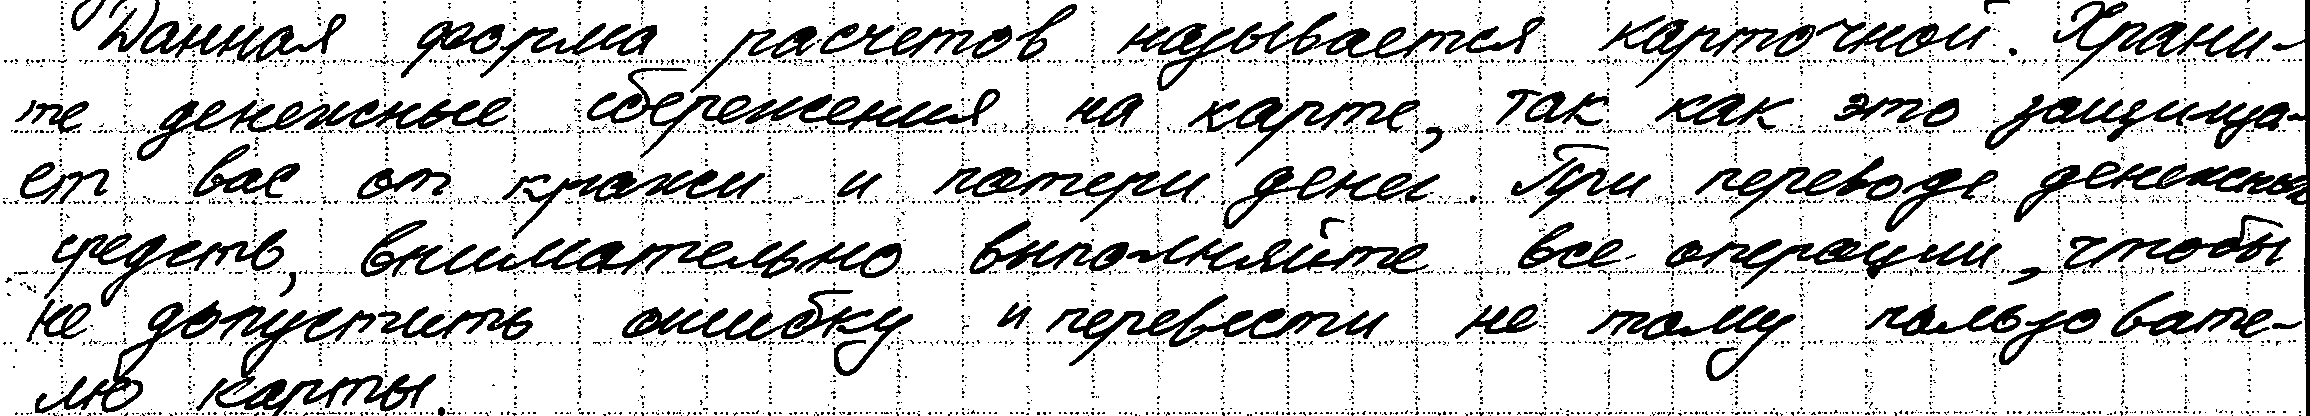 Данная форма расчетов называется карточной. Храни-
те денежные сбережения на карте, так как это защища-
ет вас от кражи и потери денег. При переводе денежных
средств, внимательно выполняйте все операции, чтобы
не допустить ошибку и перевести не тому пользовате-
лю карты.